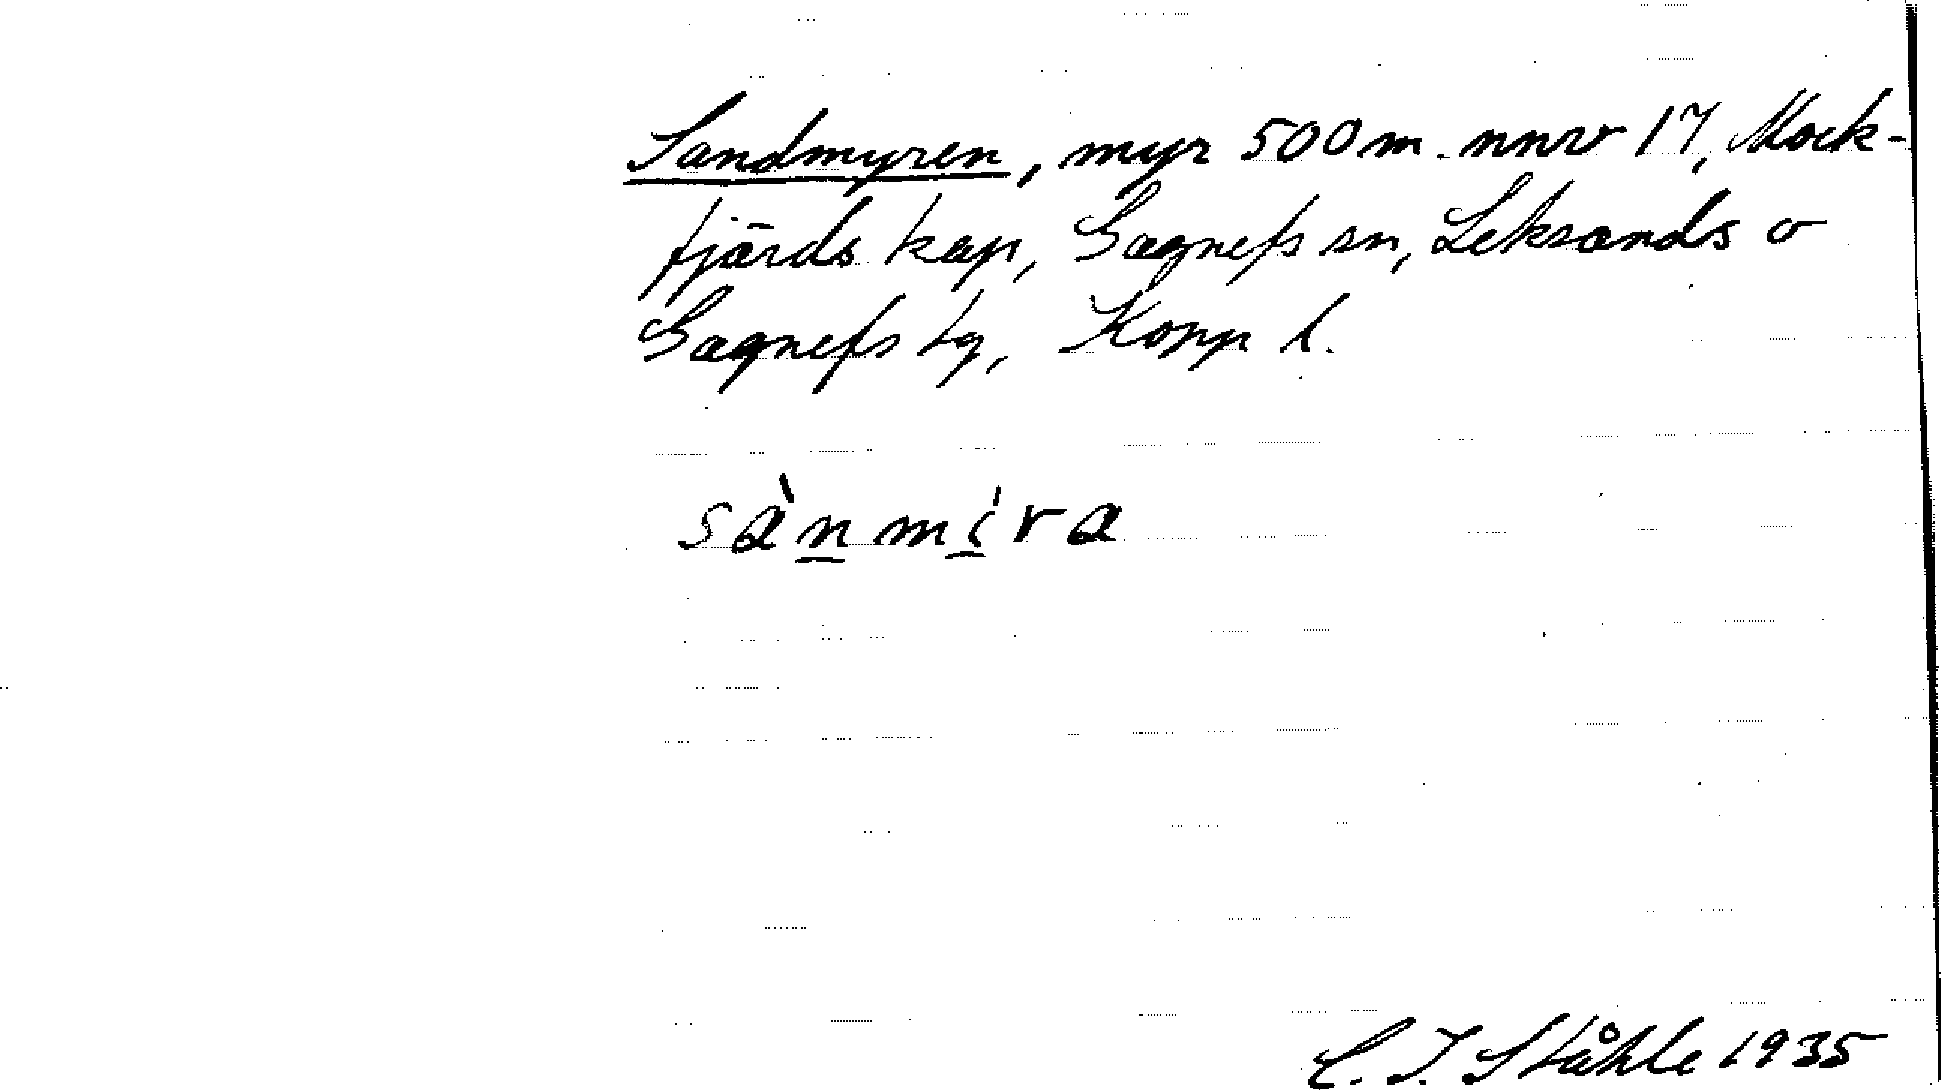 Sandmyren, myr 500 m nnv 17, Mock-
fjärds kap, Gagnefs sn, Leksands o
Gagnefs tg, Kopp l.
sàn̲mi̲̍ra
C. I. Ståhle 1935